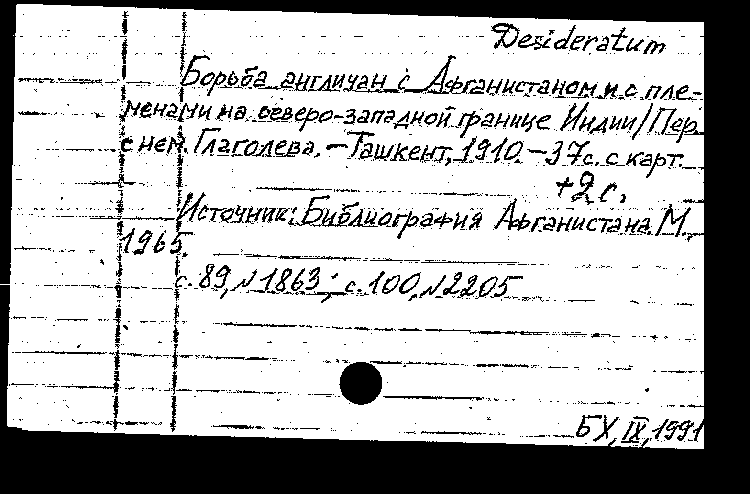 Desideratum
Борьба англичан с Афганистаном и с пле-
менами на северо-западной границе Индии/Пер.
с нем. Глаголева. – Ташкент, 1910. – 37с. с карт.
+2с.
Источник: Библиография Афганистана. М.,
1965.
с. 89, N1863; с. 100, N2205
БХ, IX, 1991